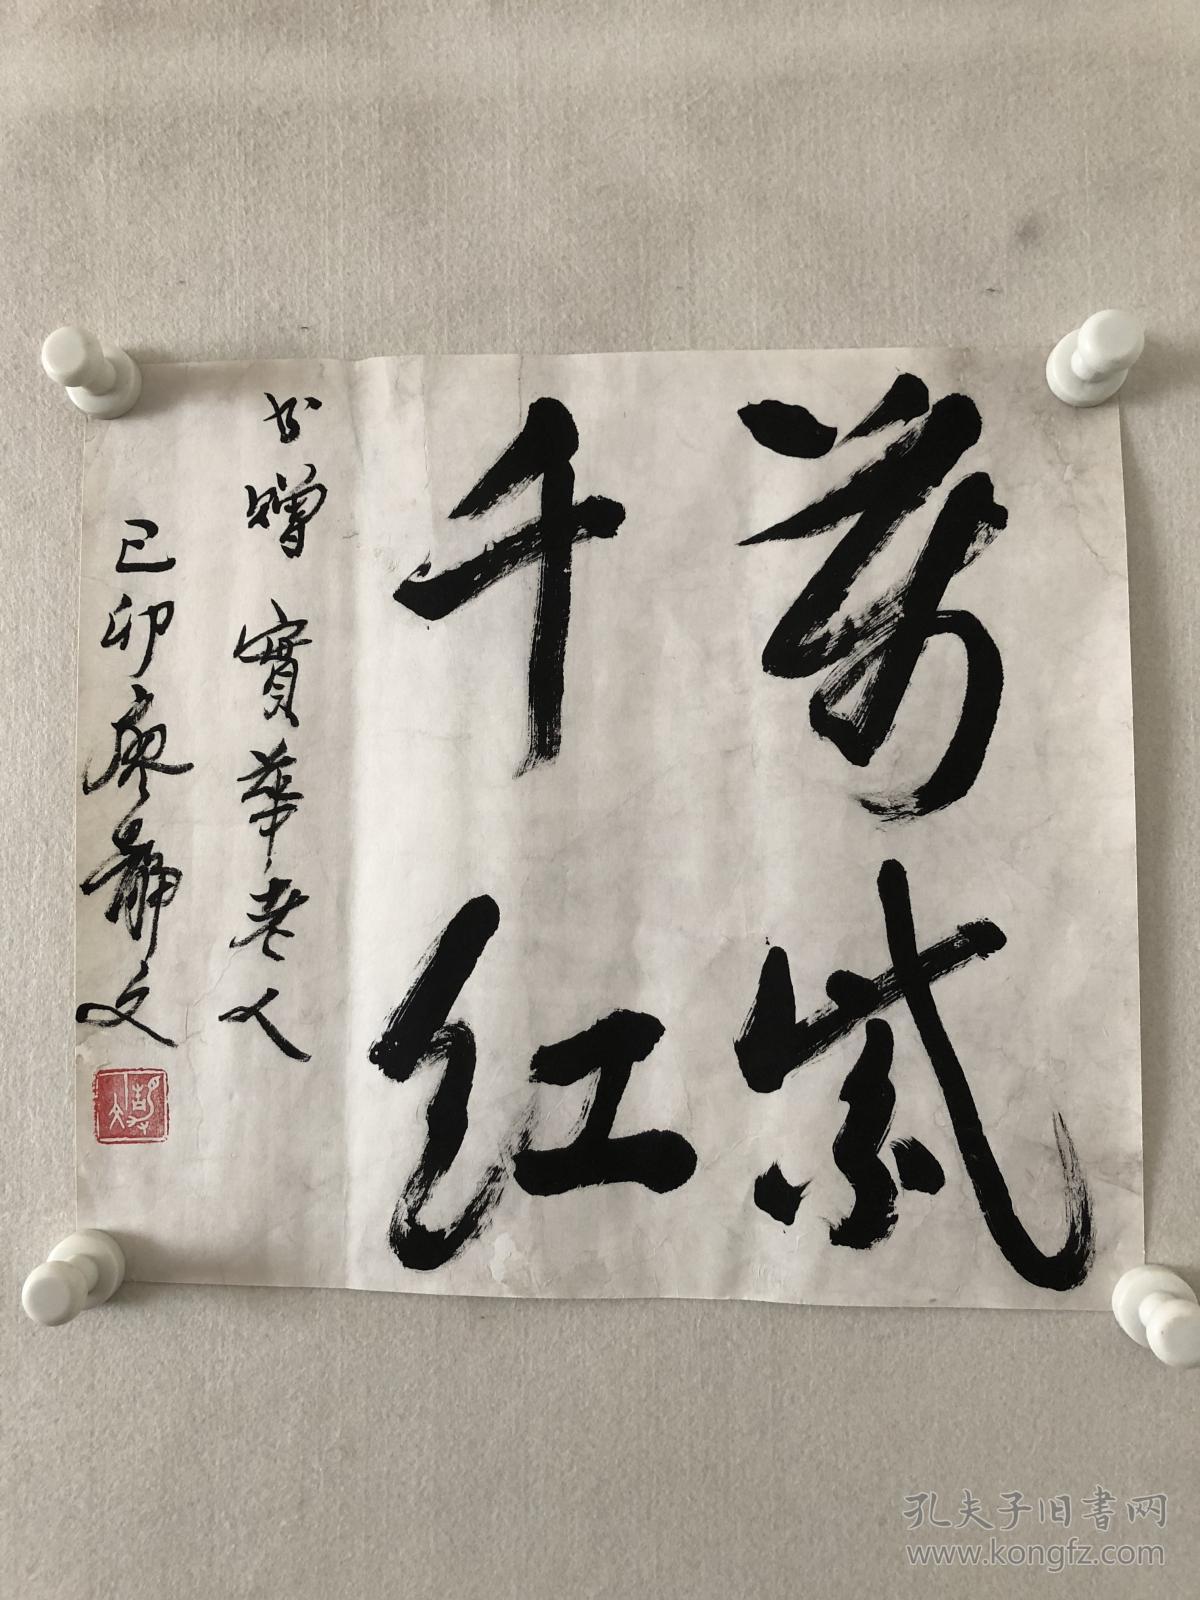 萬紫
千红
书赠 寳華老人
己卯廖静文
孔夫子旧書网
www.kongfz.com